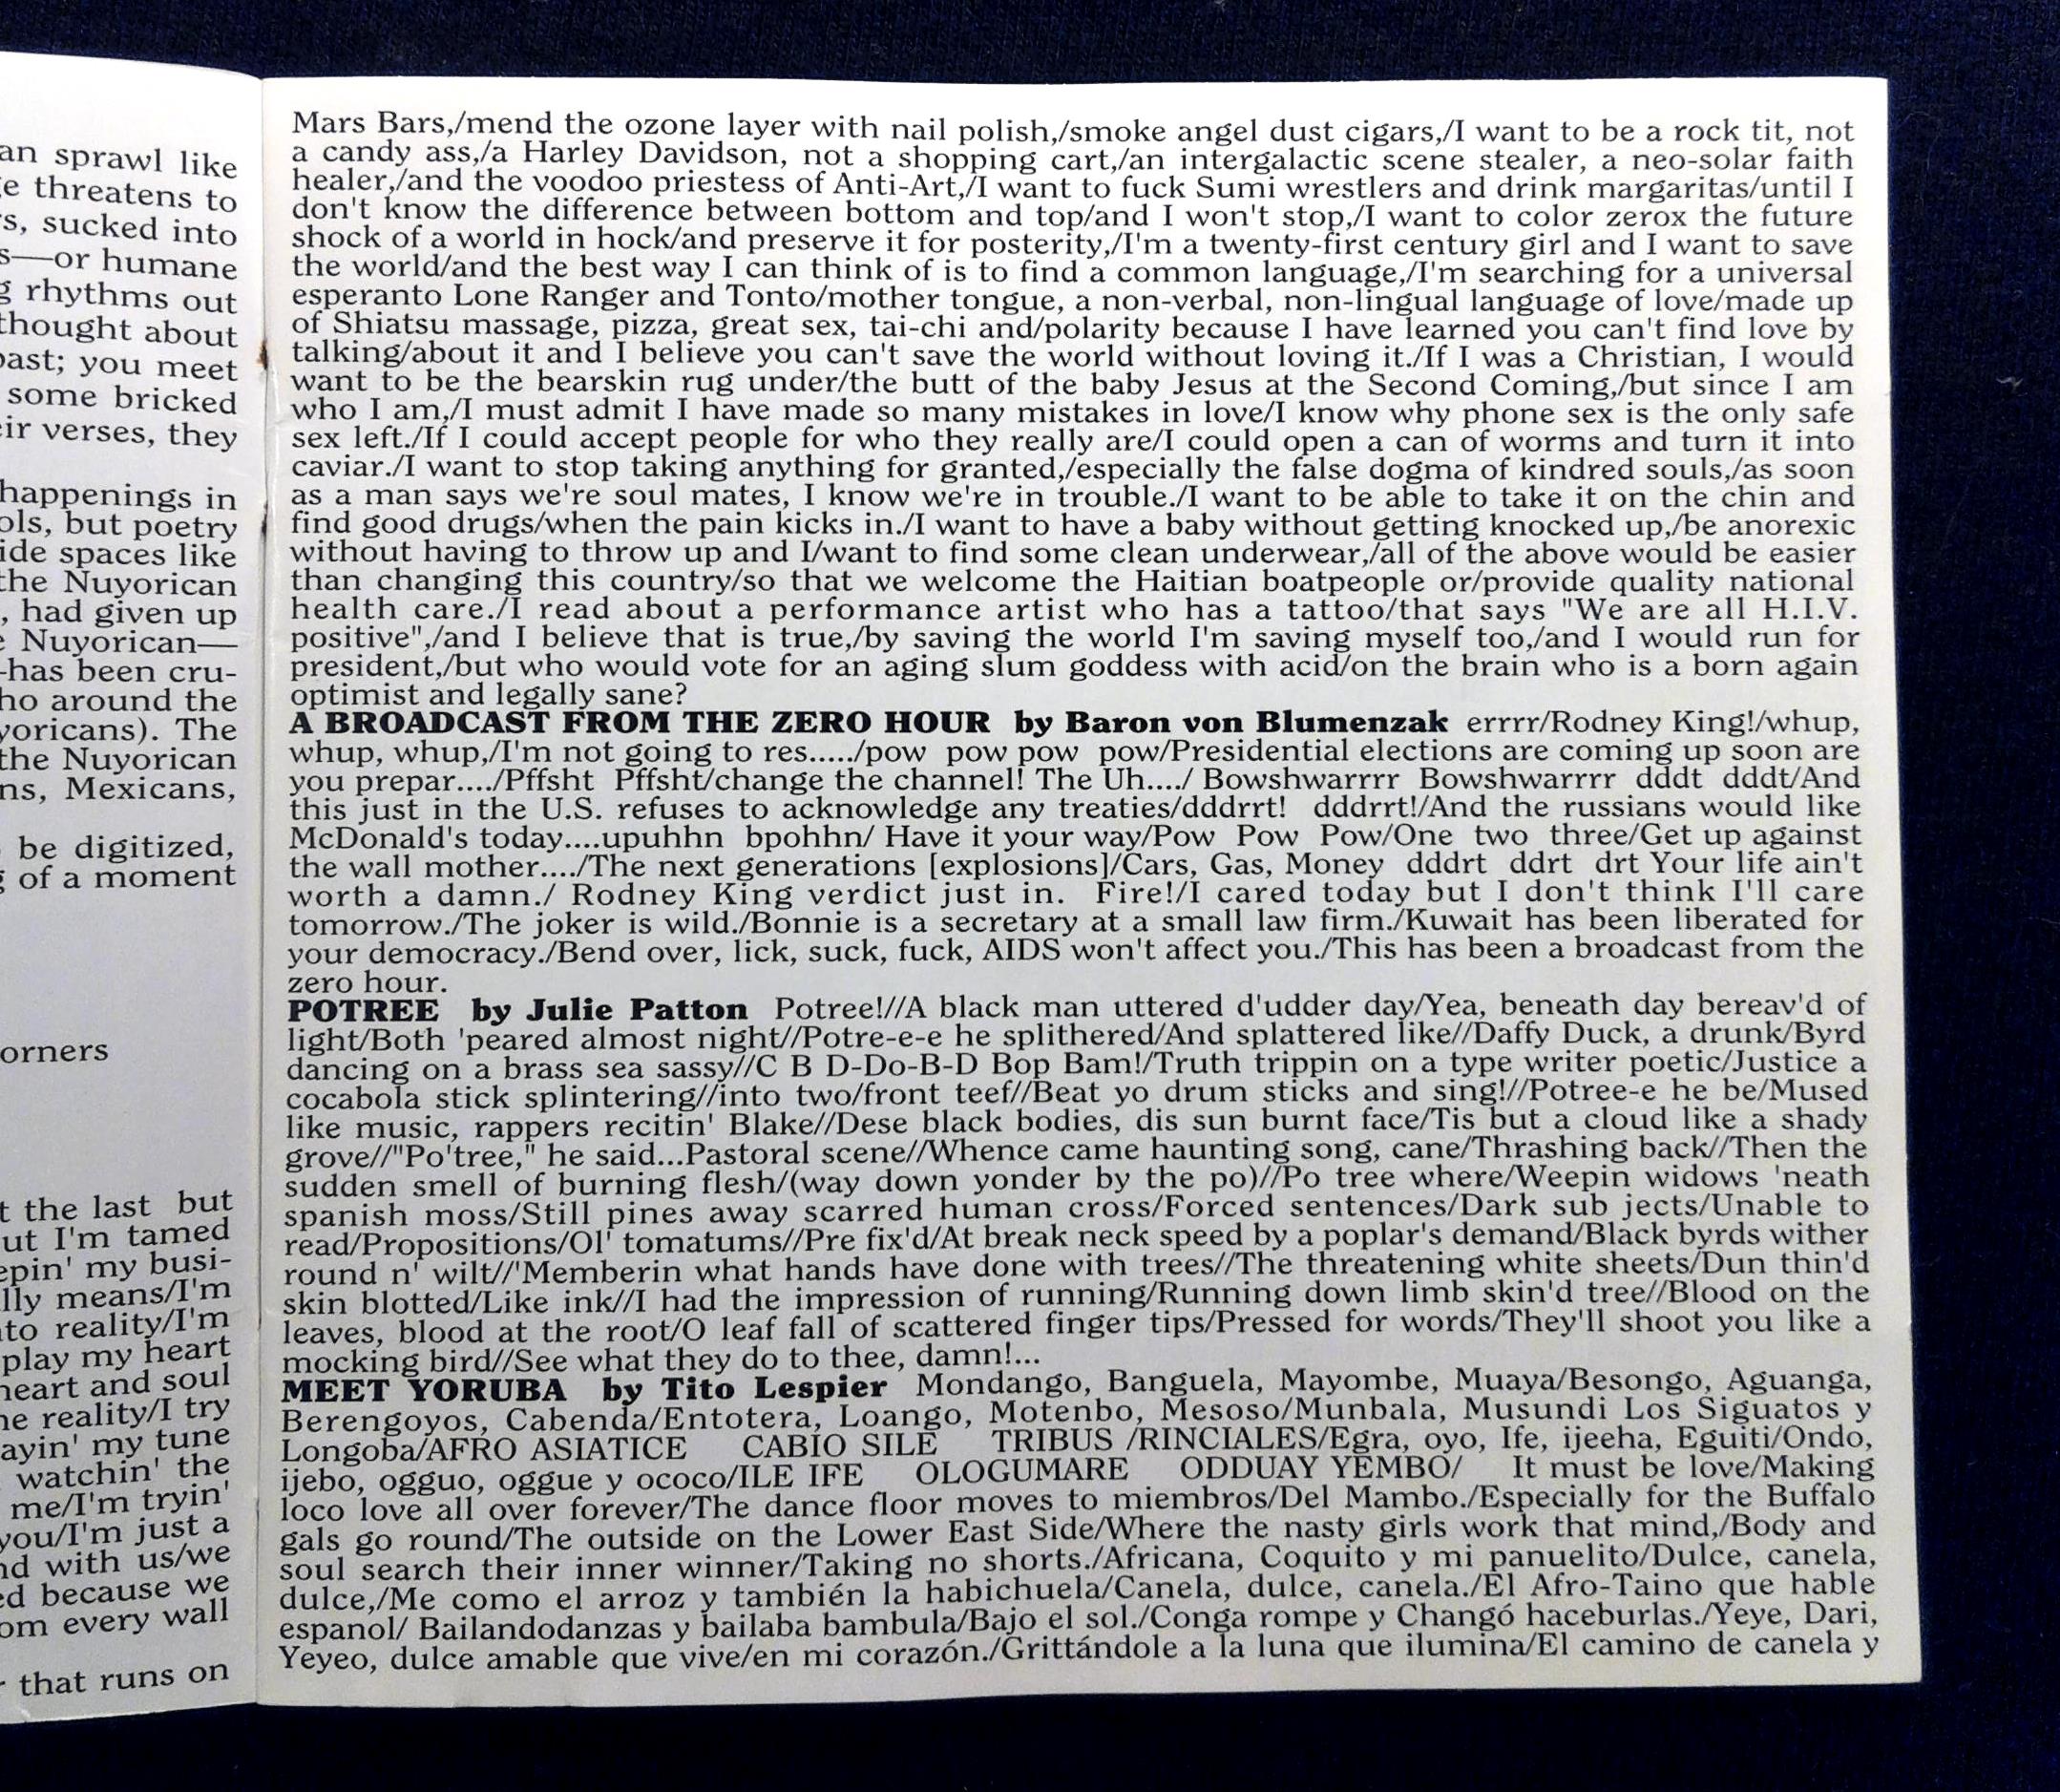 an sprawl like
threatens to
sucked into
—or humane
rhythms out
thought about
you meet
some bricked
verses, they
happenings in
but poetry
spaces like
the Nuyorican
, had given up
Nuyorican—
-has been cru-
around the
The
the Nuyorican
Mexicans,
be digitized,
of a moment
orners
the last but
I'm tamed
my busi-
means/I'm
to reality/I'm
play my heart
heart and soul
reality/I try
my tune
watchin' the
me/I'm tryin'
you/I'm just a
with us/we
because we
every wall
that runs on
Mars Bars,/mend the ozone layer with nail polish,/smoke angel dust cigars,/I want to be a rock tit, not
a candy ass,/a Harley Davidson, not a shopping cart,/an intergalactic scene stealer, a neo-solar faith
healer,/and the voodoo priestess of Anti-Art,/I want to fuck Sumi wrestlers and drink margaritas/until I
don't know the difference between bottom and top/and I won't stop,/I want to color zerox the future
shock of a world in hock/and preserve it for posterity,/I'm a twenty-first century girl and I want to save
the world/and the best way I can think of is to find a common language,/I'm searching for a universal
esperanto Lone Ranger and Tonto/mother tongue, a non-verbal, non-lingual language of love/made up
of Shiatsu massage, pizza, great sex, tai-chi and/polarity because I have learned you can't find love by
talking/about it and I believe you can't save the world without loving it./If I was a Christian, I would
want to be the bearskin rug under/the butt of the baby Jesus at the Second Coming,/but since I am
who I am,/I must admit I have made so many mistakes in love/I know why phone sex is the only safe
sex left./If I could accept people for who they really are/I could open a can of worms and turn it into
caviar./I want to stop taking anything for granted,/especially the false dogma of kindred souls,/as soon
as a man says we're soul mates, I know we're in trouble./I want to be able to take it on the chin and
find good drugs/when the pain kicks in./I want to have a baby without getting knocked up,/be anorexic
without having to throw up and I/want to find some clean underwear,/all of the above would be easier
than changing this country/so that we welcome the Haitian boatpeople or/provide quality national
health care./I read about a performance artist who has a tattoo/that says "We are all H.I.V.
positive",/and I believe that is true,/by saving the world I'm saving myself too,/and I would run for
president,/but who would vote for an aging slum goddess with acid/on the brain who is a born again
optimist and legally sane?
A BROADCAST FROM THE ZERO HOUR by Baron von Blumenzak errrr/Rodney King!/whup,
whup, whup,/I'm not going to res...../pow pow pow pow/Presidential elections are coming up soon are
you prepar..../Pffsht Pffsht/change the channel! The Uh..../ Bowshwarrrr Bowshwarrrr dddt dddt/And
this just in the U.S. refuses to acknowledge any treaties/dddrrt! dddrrt!/And the russians would like
McDonald's today....upuhhn bpohhn/ Have it your way/Pow Pow Pow/One two three/Get up against
the wall mother..../The next generations [explosions]/Cars, Gas, Money dddrt ddrt drt Your life ain't
worth a damn./ Rodney King verdict just in. Fire!/I cared today but I don't think I'll care
tomorrow./The joker is wild./Bonnie is a secretary at a small law firm./Kuwait has been liberated for
your democracy./Bend over, lick, suck, fuck, AIDS won't affect you./This has been a broadcast from the
zero hour.
POTREE by Julie Patton Potree!//A black man uttered d'udder day/Yea, beneath day bereav'd of
light/Both 'peared almost night//Potre-e-e he splithered/And splattered like//Daffy Duck, a drunk/Byrd
dancing on a brass sea sassy//C B D-Do-B-D Bop Bam!/Truth trippin on a type writer poetic/Justice a
cocabola stick splintering//into two/front teef//Beat yo drum sticks and sing!//Potree-e he be/Mused
like music, rappers recitin' Blake//Dese black bodies, dis sun burnt face/Tis but a cloud like a shady
grove//"Po'tree," he said...Pastoral scene//Whence came haunting song, cane/Thrashing back//Then the
sudden smell of burning flesh/(way down yonder by the po)//Po tree where/Weepin widows 'neath
spanish moss/Still pines away scarred human cross/Forced sentences/Dark sub jects/Unable to
read/Propositions/Ol' tomatums//Pre fix'd/At break neck speed by a poplar's demand/Black byrds wither
round n' wilt//'Memberin what hands have done with trees//The threatening white sheets/Dun thin'd
skin blotted/Like ink//I had the impression of running/Running down limb skin'd tree//Blood on the
leaves, blood at the root/O leaf fall of scattered finger tips/Pressed for words/They'll shoot you like a
mocking bird//See what they do to thee, damn!...
MEET YORUBA by Tito Lespier Mondango, Banguela, Mayombe, Muaya/Besongo, Aguanga,
Berengoyos, Cabenda/Entotera, Loango, Motenbo, Mesoso/Munbala, Musundi Los Siguatos y
Longoba/AFRO ASIATICE CABIO SILE TRIBUS /RINCIALES/Egra, oyo, Ife, ijeeha, Eguiti/Ondo,
ijebo, ogguo, oggue y ococo/ILE IFE OLOGUMARE ODDUAY YEMBO/ It must be love/Making
loco love all over forever/The dance floor moves to miembros/Del Mambo./Especially for the Buffalo
gals go round/The outside on the Lower East Side/Where the nasty girls work that mind,/Body and
soul search their inner winner/Taking no shorts./Africana, Coquito y mi panuelito/Dulce, canela,
dulce,/Me como el arroz y también la habichuela/Canela, dulce, canela./El Afro-Taino que hable
espanol/ Bailandodanzas y bailaba bambula/Bajo el sol./Conga rompe y Changó haceburlas./Yeye, Dari,
Yeyeo, dulce amable que vive/en mi corazón./Grittándole a la luna que ilumina/El camino de canela y